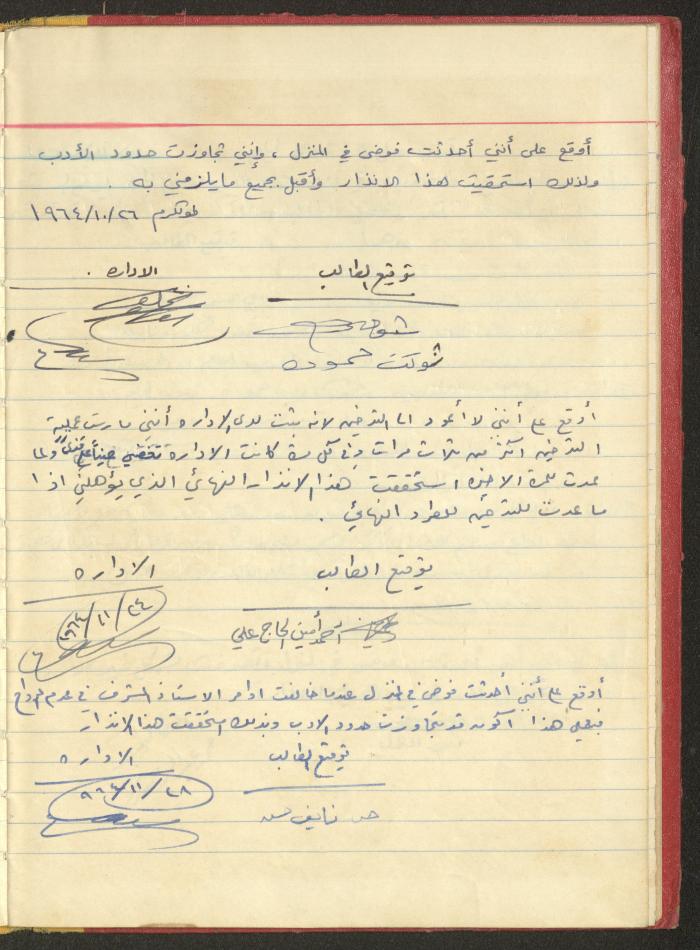 أوقع على أنني أحدثت فوضى في المنزل ، وإنني تجاوزت حدود الأدب
ولذلك استحقيت هذا الانذار وأقبل بجميع ما يلزمني به .
طولكرم ١٩٦٤/١٠/٢٦
توقيع الطالب الاداره .
شوكت حموده
أوقع على أنني لا أعود الى التدخين لانه ثبت لدى الاداره أنني مارست عملية
التدخين اكثر من ثلاث مرات وفي كل مرة كانت الاداره ولما
عدت للمرة الاخيره استحققت هذا الانذار النهائي الذي يؤهلني اذا
ما عدت للتدخين للطرد النهائي .
توقيع الطالب الاداره
١٩٦٤/١١/٢٤
احمد أمين الحاج علي
أوقع على أنني أحدثت فوضى في المنزل عندما خالفت اوامر الاستاذ المشرف في عدم
هذا أكون قد تجاوزت حدود الادب وبذلك استحققت هذا الانذار
توقيع الطالب الاداره
٩٦٤/١١/٢٨
نايف